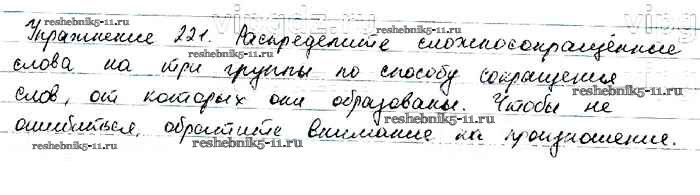 Упражнение 221. Распределите сложносокращённые
слова на три группы по способу сокращения
слов, от которых они образованы. Чтобы не
ошибиться, обратите внимание на произношение.
reshebnik5-11.ru
reshebnik5-11.ru
reshebnik5-11.ru
reshebnik5-11.ru
reshebnik5-11.ru
reshebnik5-11.ru